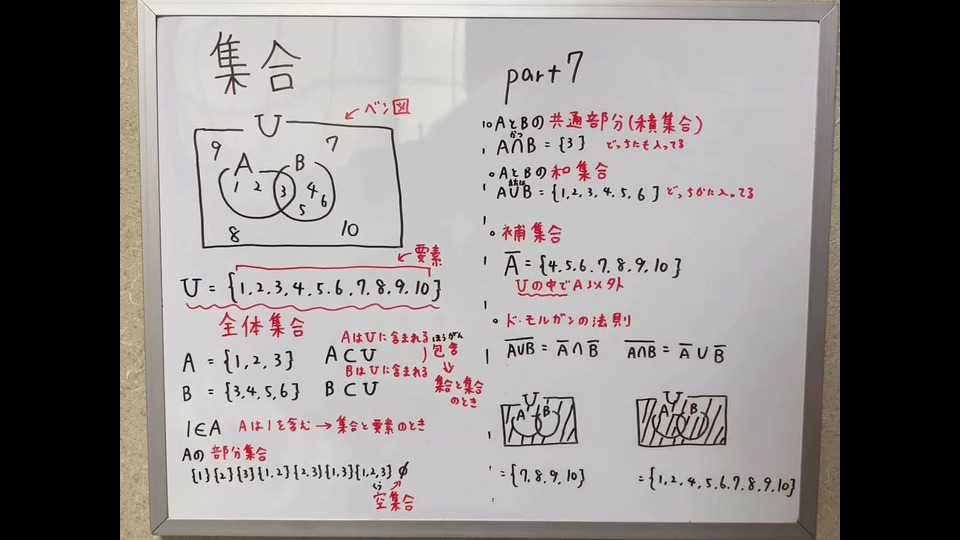 集合
part 7
ベン図
U
9
7
A
B
1 2 3 4 5 6
8
10
要素
U = {1,2,3,4,5,6,7,8,9,10}
全体集合
A = {1,2,3} A⊂U AはUに含まれる
B = {3,4,5,6} B⊂U BはUに含まれる
ほうがん
包含
集合と集合
のとき
1∈A Aは1を含む→集合と要素のとき
Aの部分集合
{1}{2}{3}{1,2}{2,3}{1,3}{1,2,3} ∅
くう
空集合
AとBの共通部分(積集合)
かつ
A∩B = {3} どっちにも入ってる
AとBの和集合
または
A∪B = {1,2,3,4,5,6} どっちかに入ってる
補集合
A̅ = {4,5,6,7,8,9,10}
Uの中でA以外
ド・モルガンの法則
A̅∪̅B̅ = A̅ ∩ B̅ A̅∩̅B̅ = A̅ ∪ B̅
U
A B
= {7,8,9,10}
U
A B
= {1,2,4,5,6,7,8,9,10}